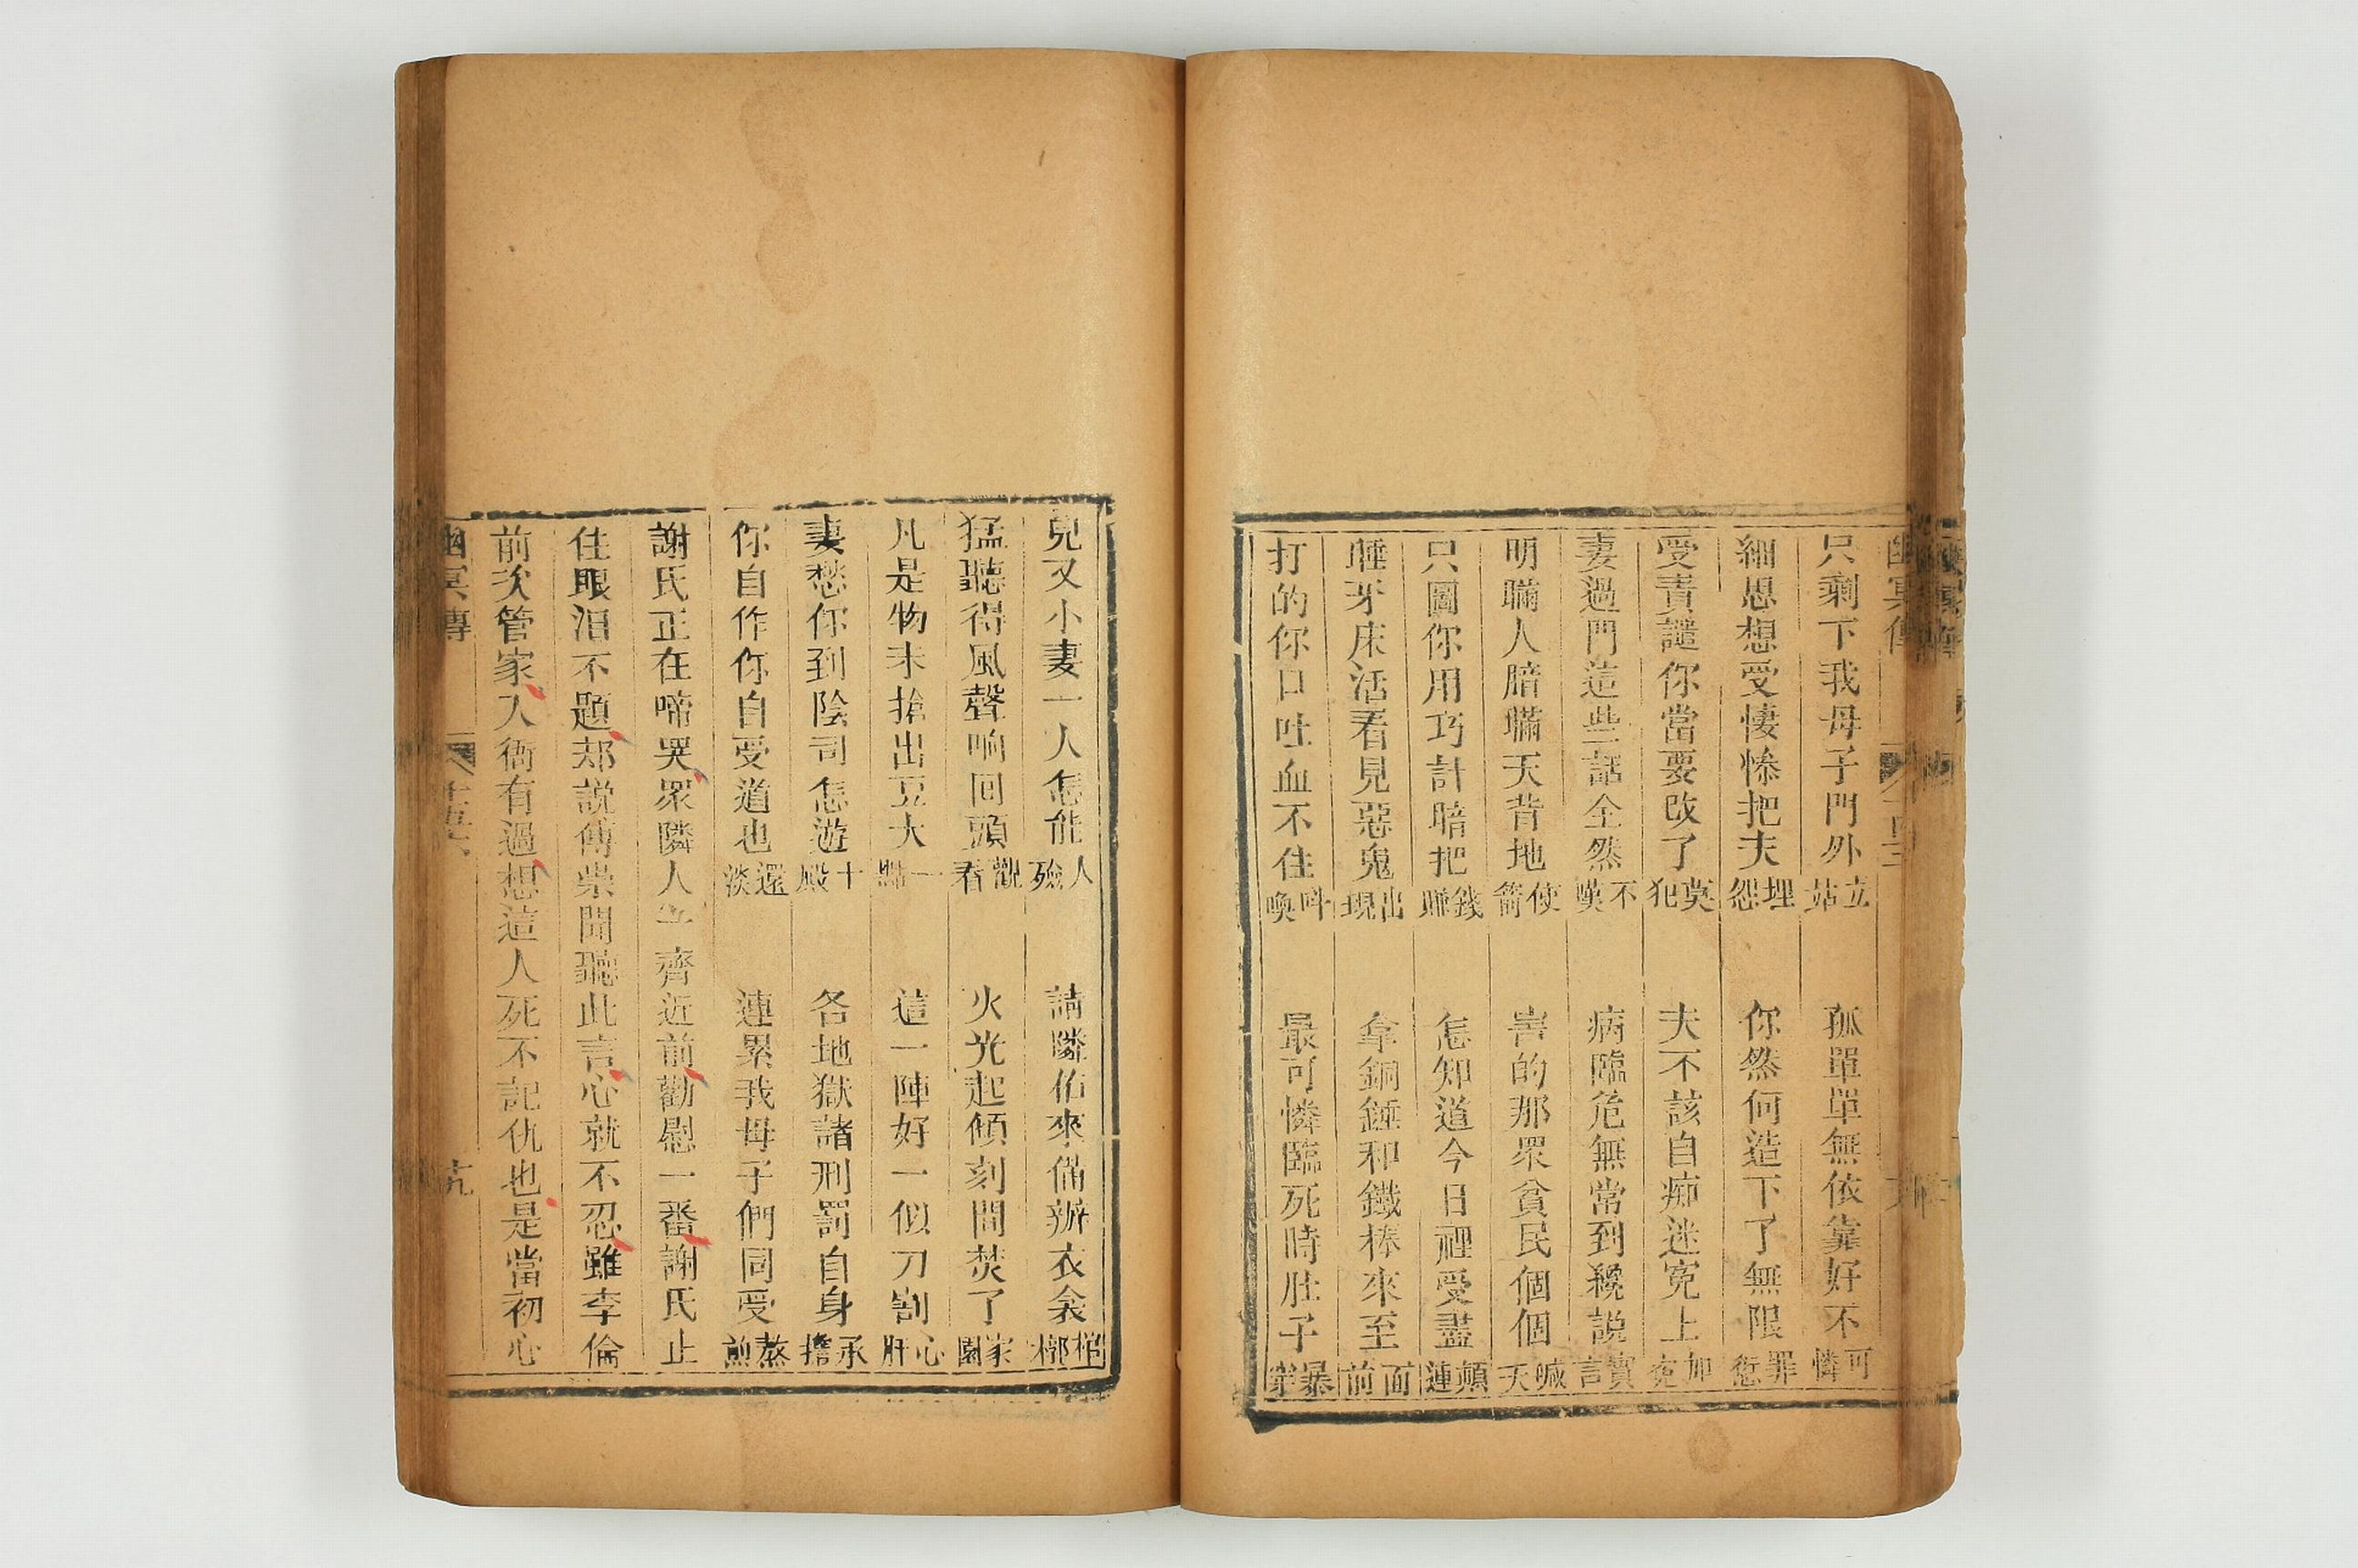 只剩下我母子門外立站　孤單單無依靠好不可憐
細思想受悽慘把夫埋怨　你然何造下了無限罪愆
受責譴你當要改了莫犯　夫不該自痴迷寃上加寃
妻過門這些話全然不嘆　病臨危無常到纔說實言
明瞞人暗瞞天背地使箭　害的那眾貧民個個喊天
只圖你用巧計暗把錢賺　怎知道今日裡受盡顛連
睡牙床活看見惡鬼出現　拿銅錘和鐵棒來至面前
打的你口吐血不住呌喚　最可憐臨死時肚子暴穿
兒又小妻一人怎能人殮　請隣佑來俻辦衣衾棺槨
猛聽得風聲响回頭觀看　火光起傾刻間焚了家園
凡是物未搶出豆大一點　這一陣好一似刀割心肝
妻愁你到陰司怎遊十殿　各地獄諸刑罰自身承擔
你自作你自受道也還淡　連累我母子們同受熬煎
謝氏正在啼哭眾隣人一齊近前勸慰一番謝氏止
住眼泪不題却說傅崇聞聽此言心就不忍雖李倫
前次管家入衙有過想這人死不記仇也是當初心
幽冥傳